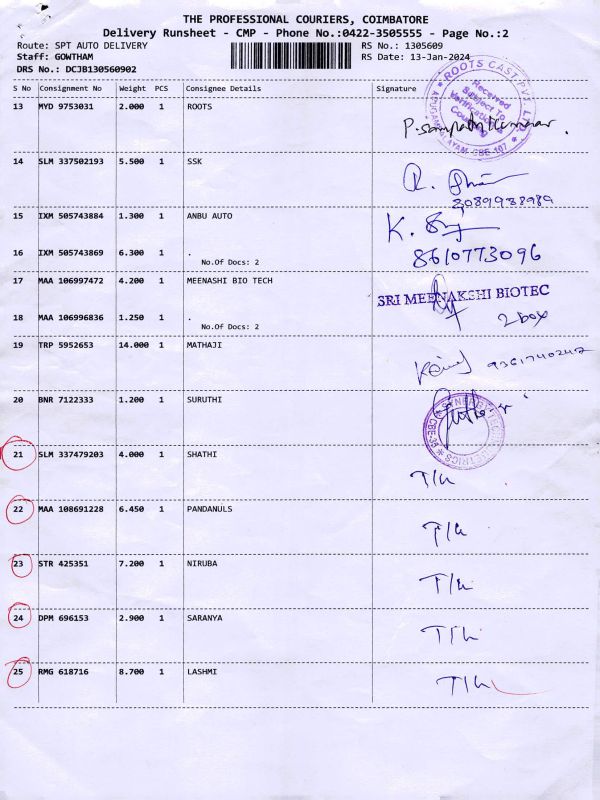 THE PROFESSIONAL COURIERS, COIMBATORE
Delivery Runsheet - CMP - Phone No.:0422-3505555 - Page No.:2
Route: SPT AUTO DELIVERY RS No.: 1305609
Staff: GOWTHAM RS Date: 13-Jan-2024
DRS No.: DCJB130560902
S No Consignment No Weight PCS Consignee Details Signature
ROOTS CAST PVT. LTD.
Received
Subject To
Verification &
Counting
CBE-107
13 MYD 9753031 2.000 1 ROOTS
P. Sampathkumaar.
14 SLM 337502193 5.500 1 SSK
15 IXM 505743884 1.300 1 ANBU AUTO
K.
16 IXM 505743869 6.300 1 .
8610773096
No.Of Docs: 2
17 MAA 106997472 4.200 1 MEENASHI BIO TECH
SRI MEENAKSHI BIOTEC
18 MAA 106996836 1.250 1 .
2 box
No.Of Docs: 2
19 TRP 5952653 14.000 1 MATHAJI
20 BNR 7122333 1.200 1 SURUTHI
21 SLM 337479203 4.000 1 SHATHI
T/h
22 MAA 108691228 6.450 1 PANDANULS
T/h
23 STR 425351 7.200 1 NIRUBA
T/h
24 DPM 696153 2.900 1 SARANYA
T/h
25 RMG 618716 8.700 1 LASHMI
T/h